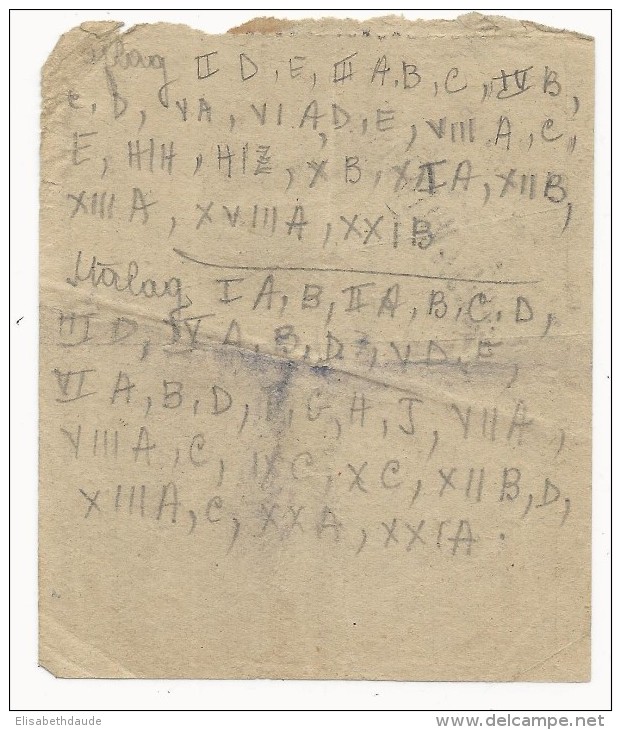 Oflag II D, E, III A, B, C, IV B,
C, D, VA, VI A, D, E, VIII A, C,
E, H/H, H/Z, X B, XI A, XII B,
XIII A, XVIII A, XXI B
Stalag I A, B, II A, B, C, D,
III D, IV A, B, D, V D, E,
VI A, B, D, F, G, H, J, VII A,
VIII A, C, IX C, X C, XII B, D,
XIII A, C, XX A, XXI A.
Elisabethdaude
www.delcampe.net